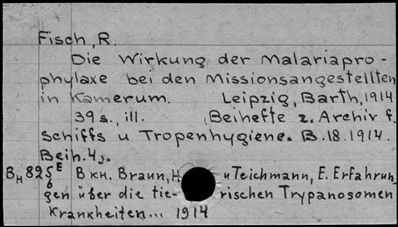 Fisch, R.
Die Wirkung der Malariapro-
phylaxe bei den Missionsangestellten
in Kamerum. Leipzig, Barth, 1914
39 s. ill. (Beihefte z. Archiv f.
Schiffs u Tropenhygiene. B. 18. 1914.
Beih. 4).
BH 895 E/6 B кн. Braun, H u Teichmann, E. Erfahrun
gen über die tie rischen Trypanosomen
Krankheiten... 1914